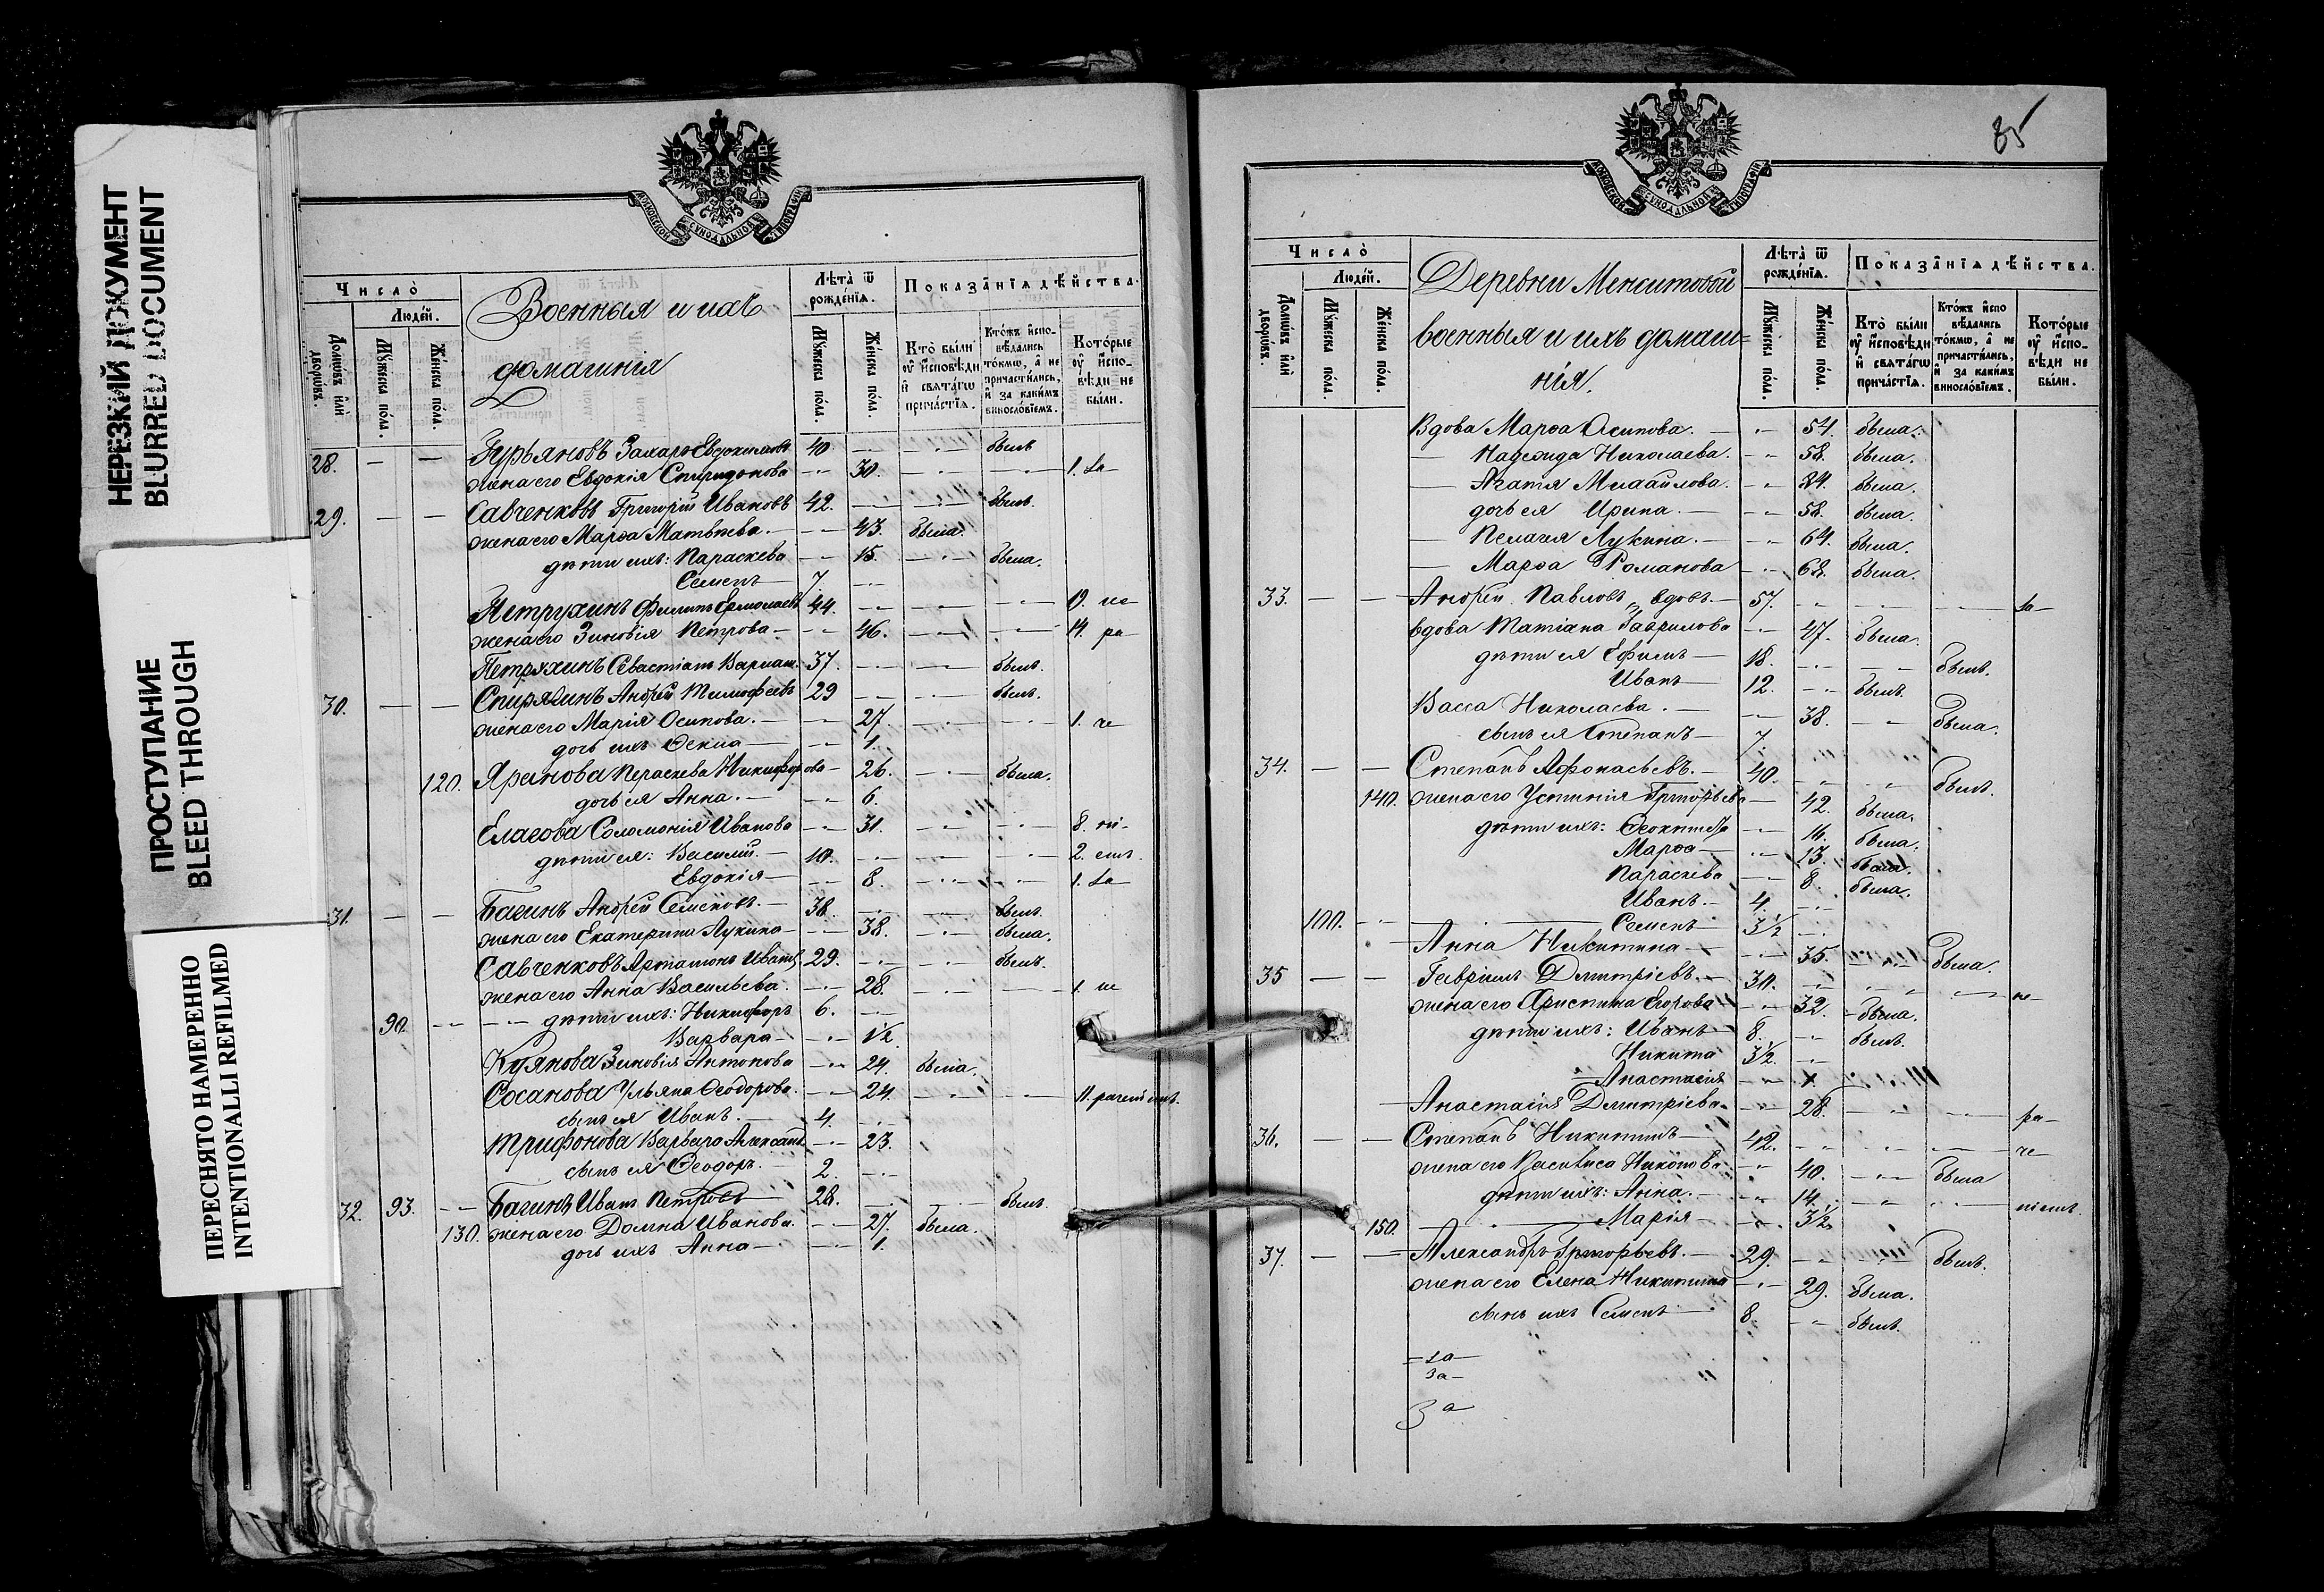 НЕРЕЗКИЙ ДОКУМЕНТ
BLURRED DOCUMENT
ПРОСТУПАНИЕ
BLEED THROUGH
ПЕРЕСНЯТО НАМЕРЕННО
INTENTIONALLI REFILMED
МОСКОВСКОЙ СѴНОДАЛЬНОЙ ТИПОГРАФІИ
Число̀
Людѐй.
Домѡвъ и҆лѝ дворѡвъ.
Мꙋ́жеска по́ла.
Же́нска по́ла.
Военныя и ихъ
домашнія
Лѣта̀ ѿ рождѐнїя.
Мꙋ́жеска по́ла.
Же́нска по́ла.
Показа̑нїѧ дѣ́йства.
Кто̀ бы́ли оу҆ и҆сповѣди и҆ свѧта́гѡ прича́стїѧ.
Кто́жъ и҆спо-вѣдались то́кмѡ, а҆ не причасти́лись, и҆ за каки́мъ винослόвїемъ.
Кото́рые оу҆ и҆спо-вѣди не бы́ли.
28. — — Гурьяновъ Захаръ Евдокимовъ 40 былъ
жена его Евдокія Спиридонова 30. 1. за
29. — — Савченковъ Григорій Ивановъ 42. былъ.
жена его Марѳа Матвѣева. 43. была.
дѣти ихъ: Параскева 15. была.
Семенъ 7
Петрухинъ Филипъ Ермолаевъ 44. 19. не
жена его Зиновія Петрова 46. 14. ра
Петряхинъ Севастіанъ Варлам. 37. былъ.
30. — — Спирядинъ Андрей Тимофеевъ 29 былъ.
жена его Марія Осипова. 27. 1. че
дочь ихъ Ѳекла 1.
120. Яранова Пераскева Никифорова 26. была.
дочь ея Анна. 6.
Елагова Соломонія Иванова 31. 8. ні-
дѣти ея: Василій. 10. 2. емъ.
Евдокія 8. 1. за
31. — — Багинъ Андрей Семеновъ. 38. былъ.
жена его Екатерина Лукина 38. была.
Савченковъ Артамонъ Иванов. 29. былъ.
жена его Анна Васильева. 28. 1. не
90. дѣти ихъ: Никифоръ 6.
Варвара 1/2
Куянова Зиновія Антонова 24. была.
Сосанова Ульяна Ѳеодорова. 24. 11. раченіемъ.
сынъ ея Иванъ. 4.
Трифонова Варвара Александ. 23.
сынъ ея Ѳеодоръ. 2.
32. 93. Багинъ Иванъ Петровъ 28. былъ.
130. жена его Домна Иванова. 27. была.
дочь ихъ Анна 1.
85
МОСКОВСКОЙ СѴНОДАЛЬНОЙ ТИПОГРАФІИ
Число̀
Людѐй.
Домѡвъ и҆лѝ дворѡвъ.
Мꙋ́жеска по́ла.
Же́нска по́ла.
Деревни Менситовой
военныя и ихъ домаш=
нія.
Лѣта̀ ѿ рождѐнїя.
Мꙋ́жеска по́ла.
Же́нска по́ла.
Показа̑нїѧ дѣ́йства.
Кто̀ бы́ли оу҆ и҆сповѣди и҆ свѧта́гѡ прича́стїѧ.
Кто́жъ и҆спо вѣдались то́кмѡ, а҆ не причасти́лись, и҆ за каки́мъ винослόвїемъ.
Кото́рые оу҆ и҆спо-вѣди не бы́ли.
Вдова Марѳа Осипова. 54. была.
— Надежда Николаева. 58. была.
— Агатія Михайлова. 84. была.
дочь ея Ирина. 58. была.
— Пелагея Лукина. 64. была.
— Марѳа Романова 68. была.
33. — — Андрей Павловъ „ вдовъ. 57. за
вдова Татіана Гаврилова 47. была.
дѣти ея Ефимъ 18. былъ.
Иванъ 12. былъ.
Васса Николаева. 38. была.
сынъ ея Степанъ 7.
34. — — Степанъ Афонасьевъ. 40. былъ.
140. жена его Устинія Григорьева 42. была.
дѣти ихъ: Ѳеоктиста 16. была.
Марѳа 13. была.
Параскева 8. была.
Иванъ. 4.
100. Семенъ 3½
Анна Никитина 35. была.
35 — — Гавріилъ Дмитріевъ. 30. не
жена его Христина Егорова 32. была.
дѣти ихъ: Иванъ 8. былъ.
Никита 3½.
Анастасія
Анастасія Дмитріева. 28. ра
36. — — Степанъ Никитинъ 42. че
жена его Василиса Никонова 40. была
дѣти ихъ: Анна. 14. ніемъ.
150. Марія 3½
37. — — Александръ Григорьевъ. 29. былъ.
жена его Елена Никитина 29. была.
сынъ ихъ Семенъ 8. былъ.
за
за
За